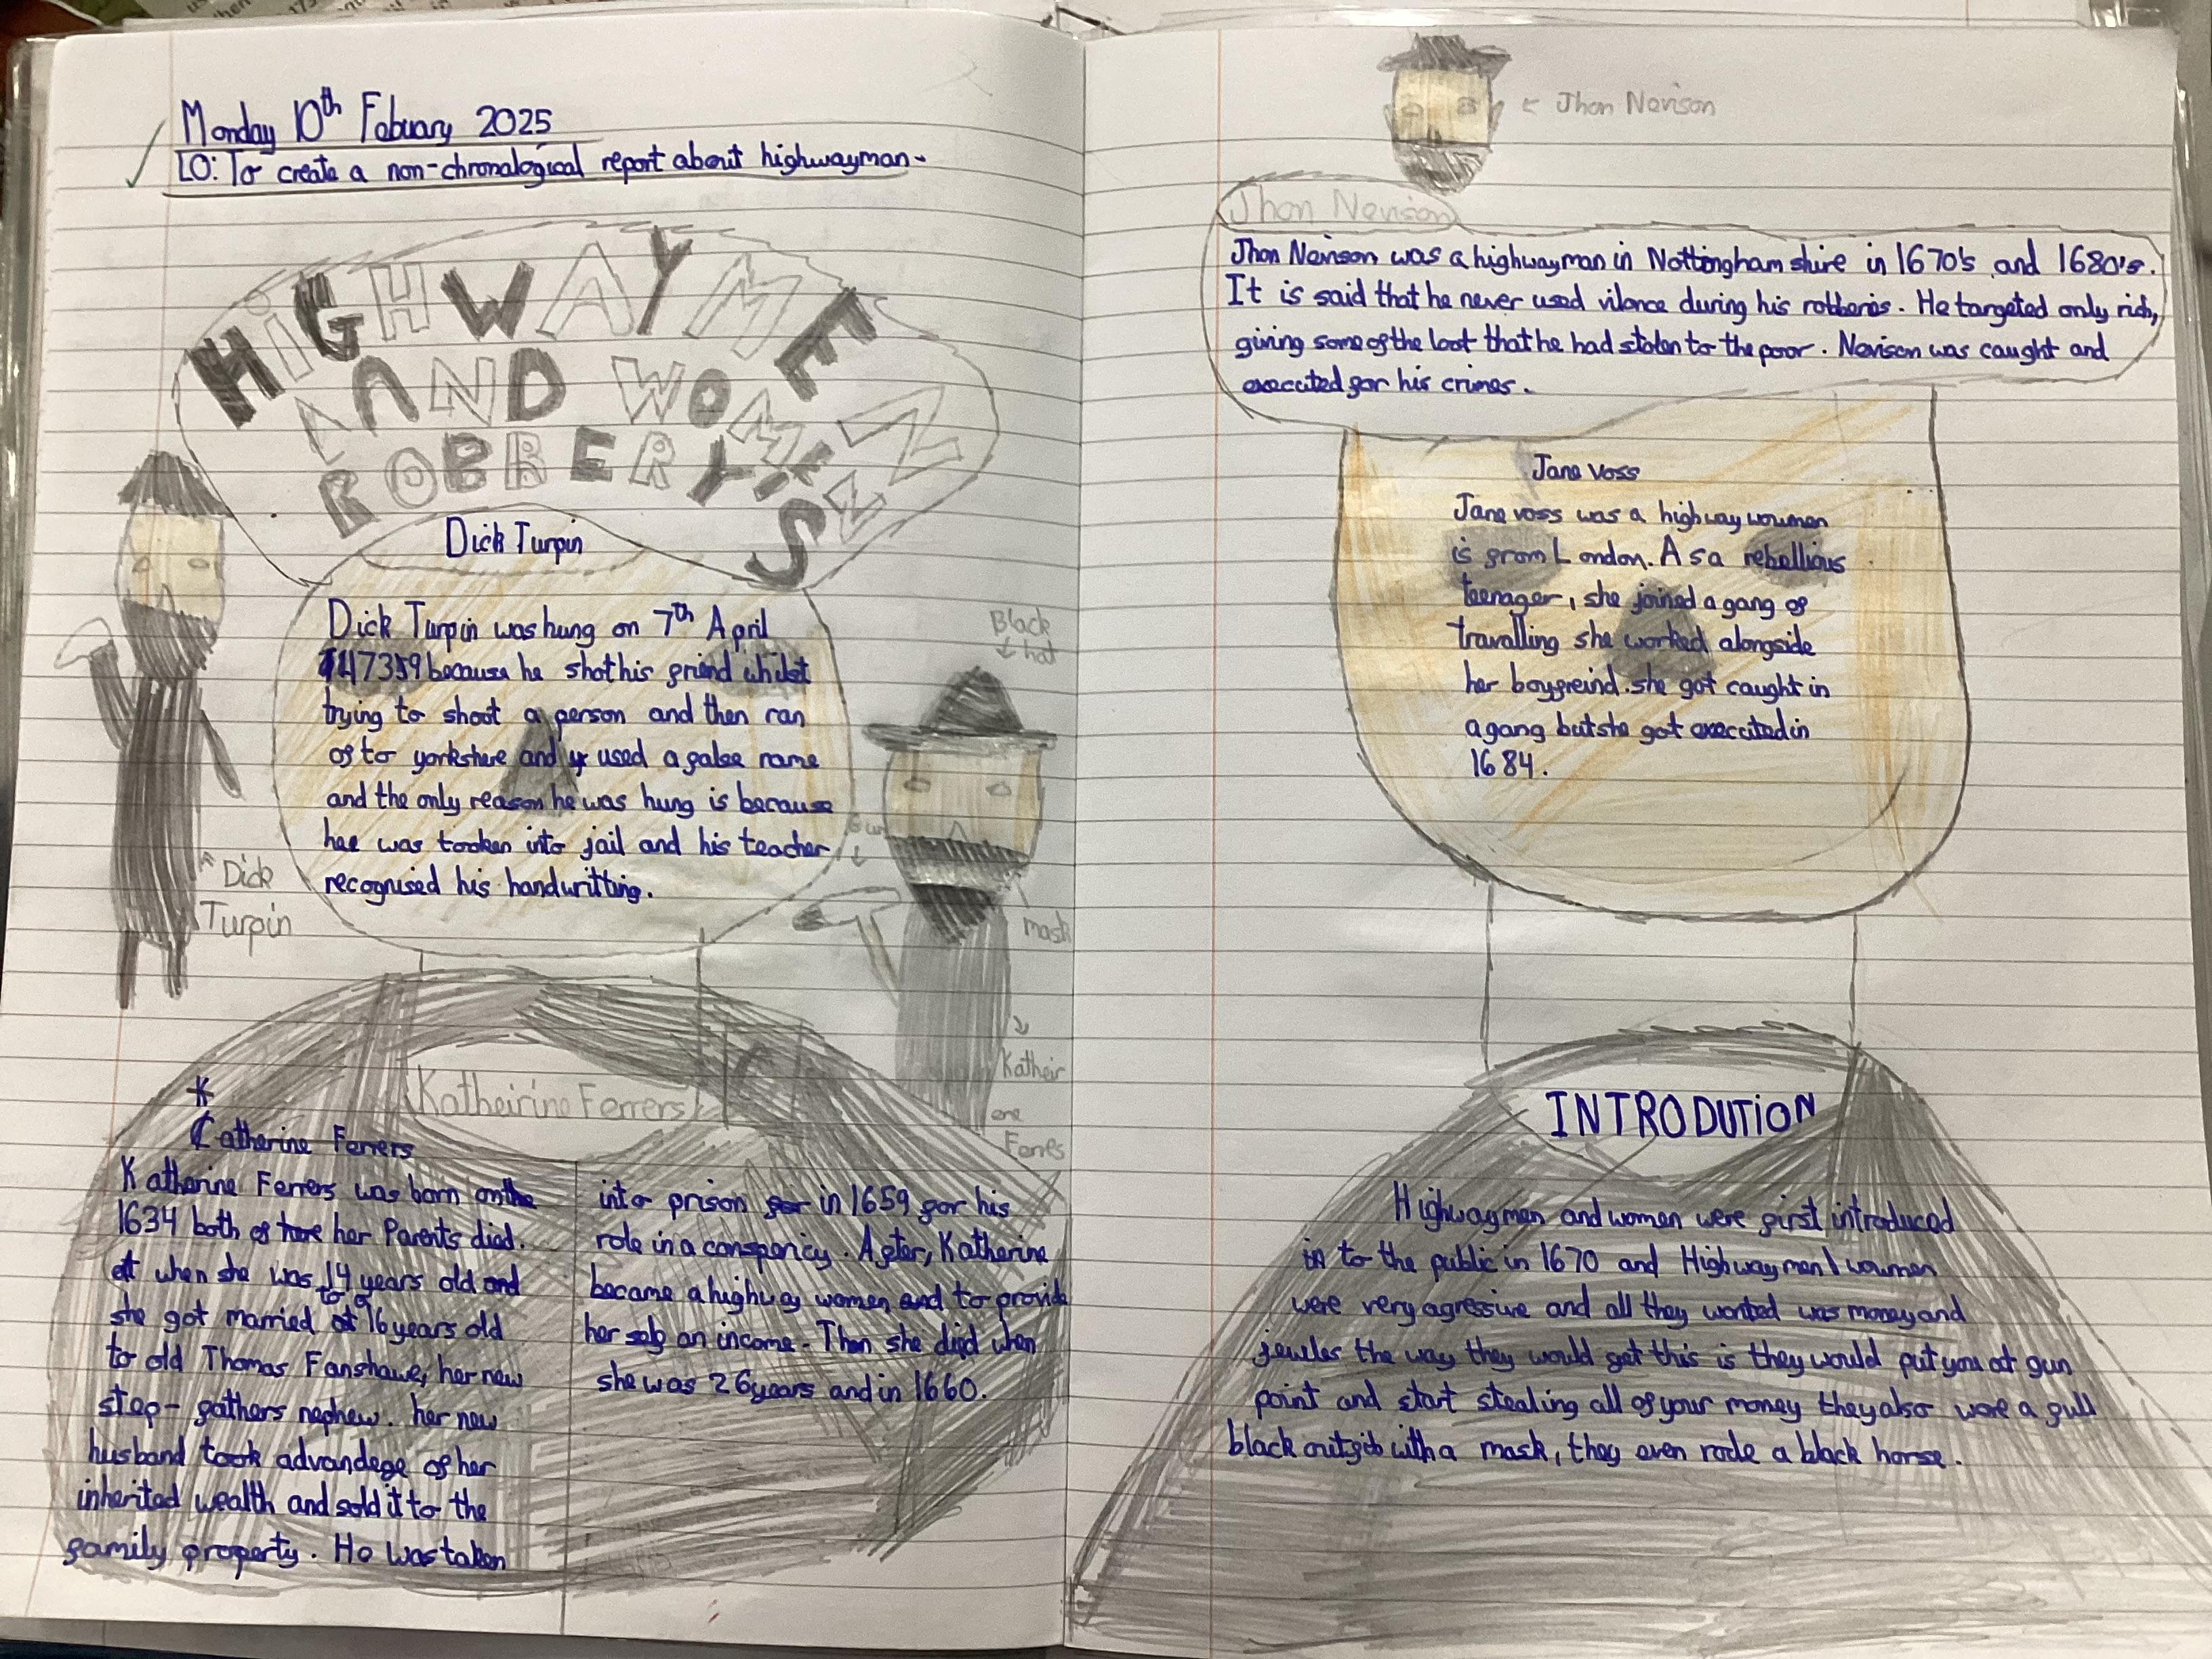 Monday 10th Febuary 2025
LO: To create a non-chronalogical report about highwayman.
HiGHWAYMEN
AND WOMEN
ROBBERYS
Dick Turpin
Dick Turpin was hung on 7th April
because he shot his griend whilst
trying to shoot a person and then ran
of to yorkshere and used a galse name
and the only reason he was hung is because
hee was tooken into jail and his teacher
recognised his handwritting.
Dick
Turpin
Black
hat
Gun
mask
Katheir
ene
Ferres
Katheirine Ferrers
K
Catherine Ferrers
Katherine Ferrers was born on the
1634 both of here her Parents died.
at when she was 14 years old and
to
she got married at 16 years old
to old Thomas Fanshawe, her new
step-gathers nephew. her new
husband took advandege of her
inherited wealth and sold it to the
gamily property. He was taken
into prison gor in 1659 gor his
role in a conspericy. Agter, Katherine
became a highway women and to provide
her selg an income. Then she died when
she was 26 years and in 1660.
Jhon Nevison
Jhon Nevison
Jhon Nevison was a highwayman in Nottingham shire in 1670's and 1680's.
It is said that he never used vilance during his robberies. He targeted only rich,
giving some of the loot that he had stolen to the poor. Nevison was caught and
executed gor his crimes.
Jane Voss
Jane voss was a highway woumen
is grom London. As a rebellious
teenager, she joined a gang of
travalling she worked alongside
her boygreind. she got caught in
a gang but she got executed in
1684.
INTRODUTION
Highwaymen and women were girst introduced
in to the public in 1670 and Highwaymen\woumen
were very agressive and all they wanted was money and
jeweles the way they would get this is they would put you at gun
point and start stealing all of your money they also wore a gull
black outgit with a mask, they even rode a black horse.